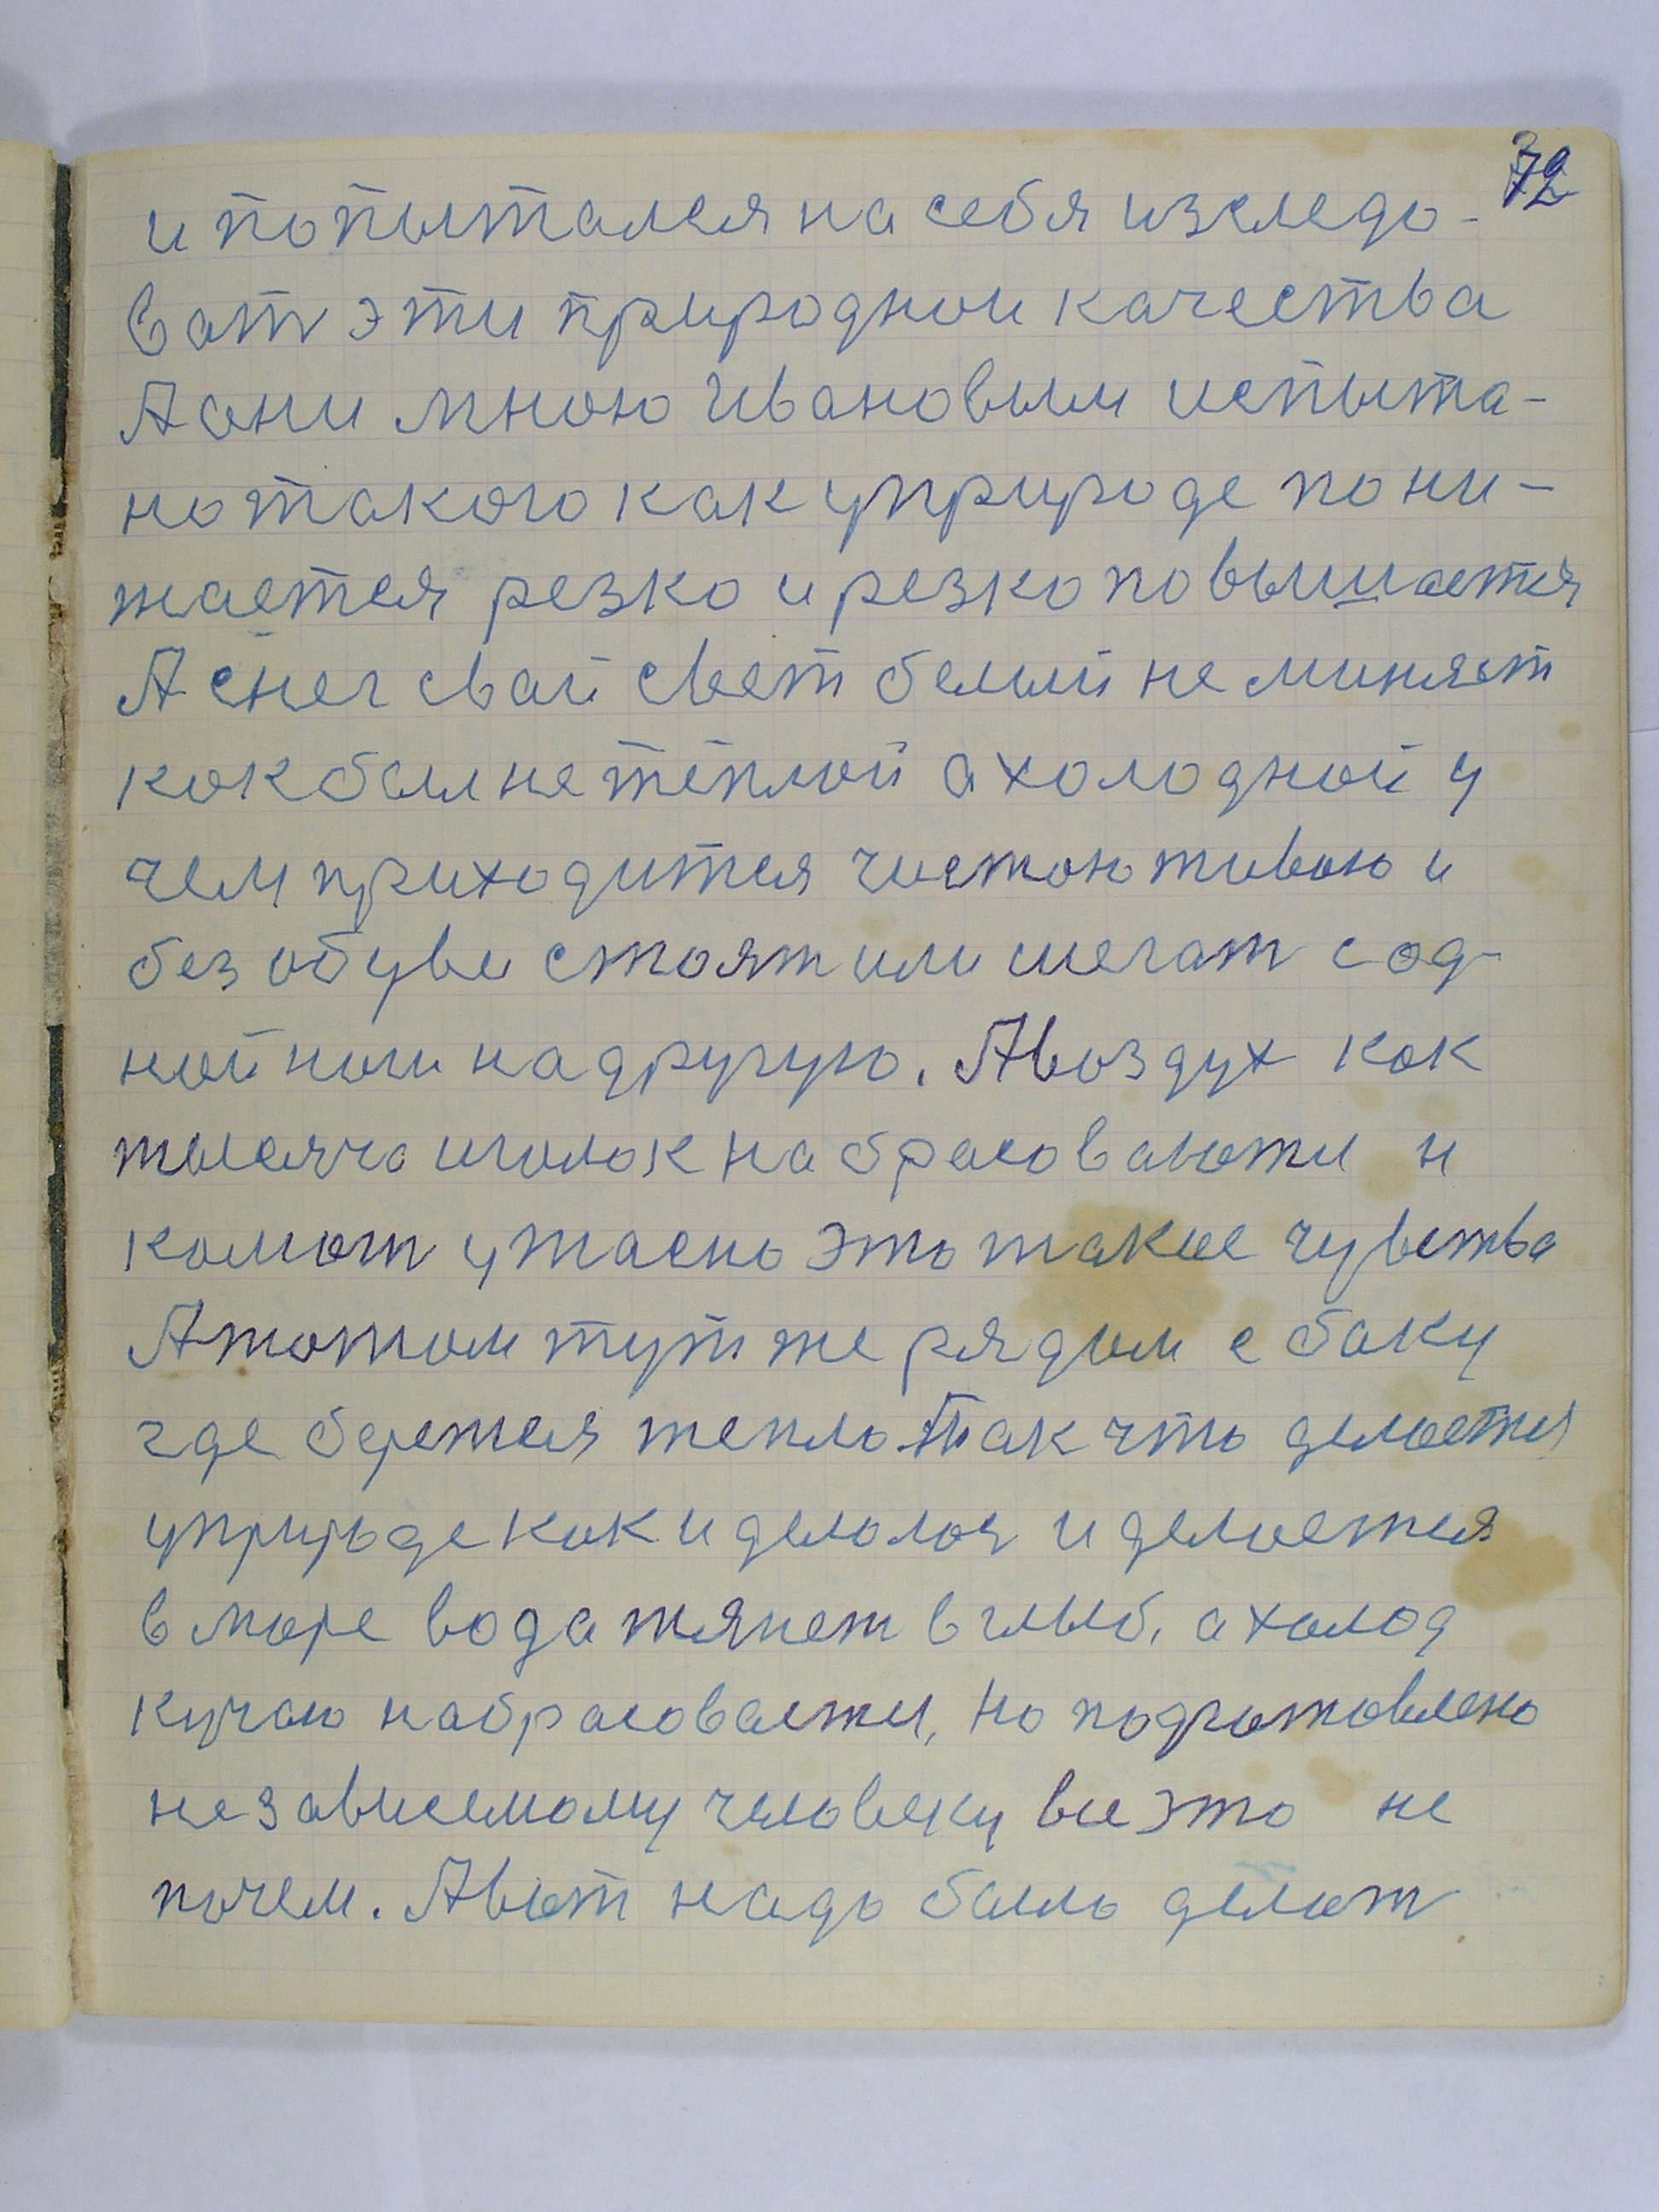 72
и попытался на себя изследо-
ват эти природнои качества
А они мною Ивановым испыта-
но такого как уприроде пони-
жается резко и резко повышается
А снег свай свет белый не миняет
как был не тёплой а холодной у
чем приходится чистою живою и
без обуви стоят или шегат с од-
ной ноги на другую. А воздух как
тысяча иголок набрасоваюти и
комот ужасно это такое чувства
А потом тут же рядом с баку
где берется тепло Так что делается
уприроде как и делолос и делается
в море вода тянет в глыб, а холод
кучаю набрасоваети, но подготовлено
независемому человеку все это не
почем. А вот надо было делат